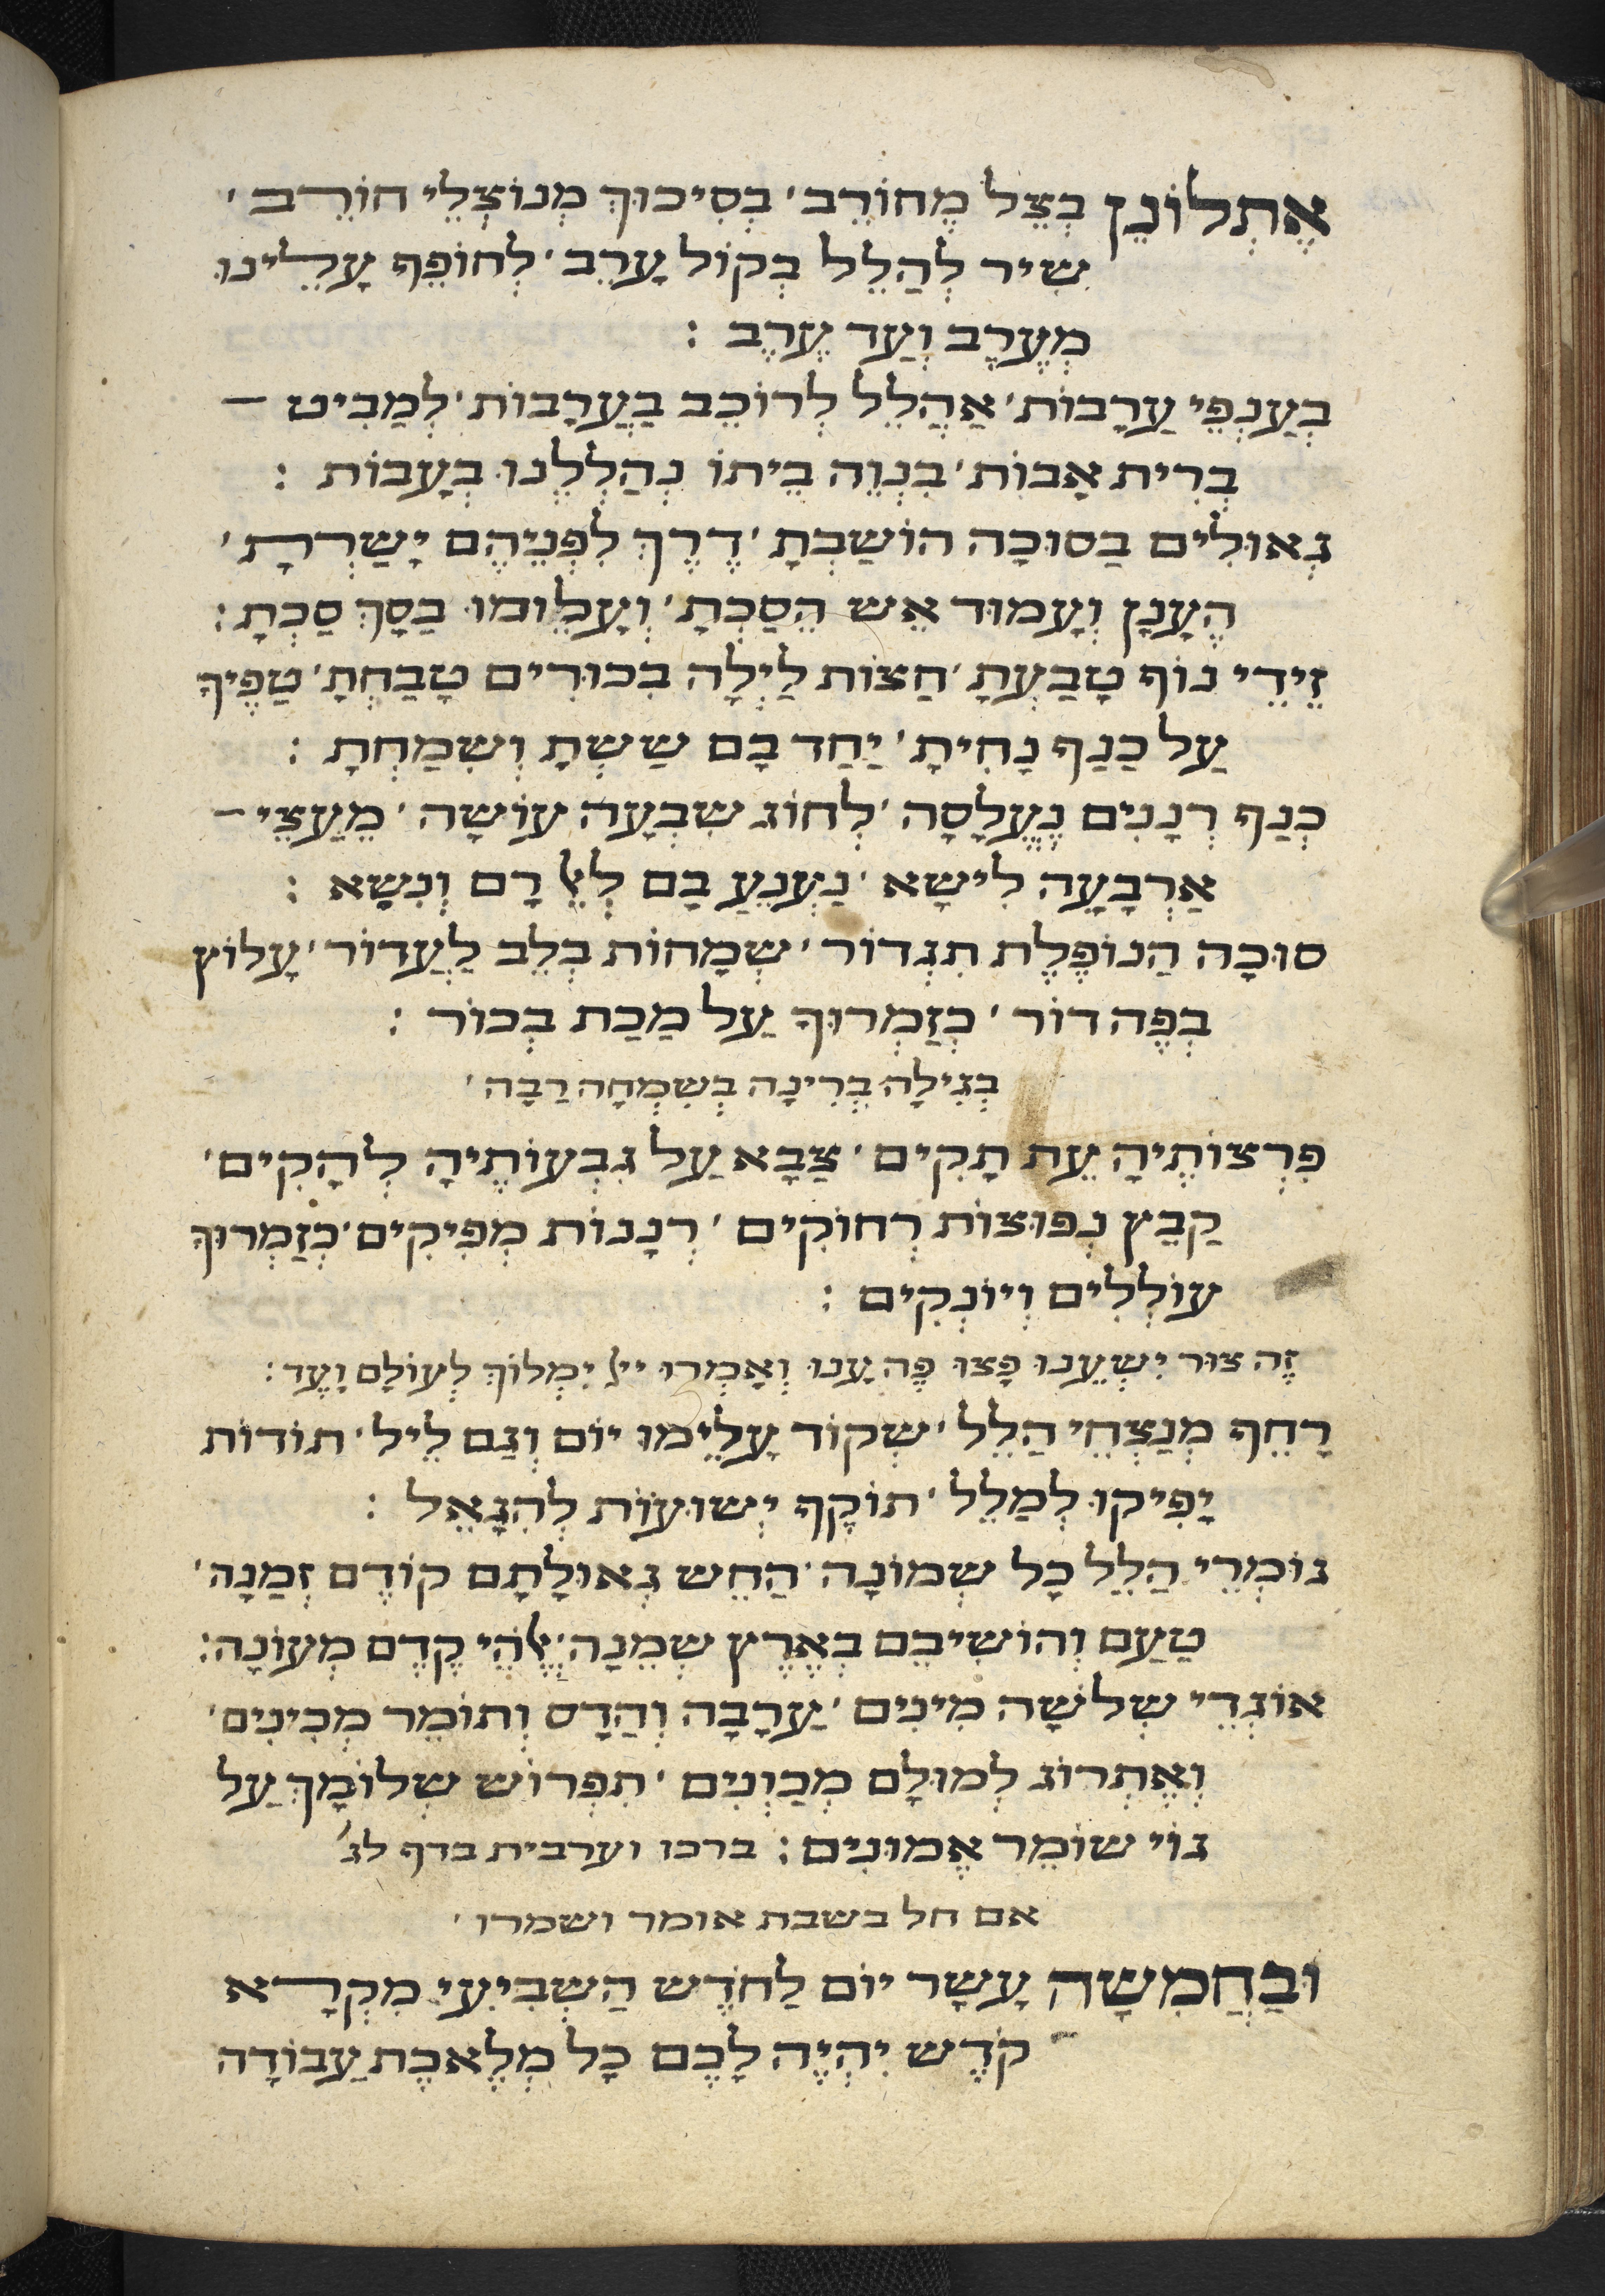 אֶתְלוֹנֵן בְצֵל מֶחוֹרֵב׳ בְסִיכוּךְ מְנוֹצְלֵי חוֹרֵב׳
שִיר לְהַלֵל בְקוֹל עָרֵב׳ לְחוֹפֵף עָלֵינוּ
מְעֶרֶב וְעַד עֶרֶב :
בְעַנְפֵי עֲרָבוֹת׳ אֲהַלֵל לְרוֹכֵב בַעֲרָבוֹת׳ לְמַבִיט –
בְרִית אָבוֹת׳ בִנְוֵה בֵיתוֹ נְהַלְלֶנוּ בְעָבוֹת :
גְאוּלִים בַסוּכָה הוֹשַבְתָ׳ דֶרֶךְ לִפְנֵיהֶם יָשַרְתָ׳
הֶעָנָן וְעָמוּד אֵש הֵסַכְתָ׳ וְעָלֵימוֹ בַסָךְ סַכְתָ :
זֵידֵי נוֹף טָבַעְתָ׳ חַצוֹת לַיְלָה בִכוּרִים טָבַחְתָ׳ טַפֶיךָ
עַל כַנַף נָחִיתָ׳ יַחַד בָם שַשְתָ וְשִמַחְתָ :
כְנַף רְנָנִים נֶעֱלָסָה׳ לְחוֹג שִבְעָה עוֹשָה׳ מֵעֲצֵי –
אַרְבָעָה לִישָא׳ נַעֲנֵעַ בָם לְאֵל רָם וְנִשָא :
סוּכָה הַנוֹפֶלֶת תִגְדוֹר׳ שְמָחוֹת בְלֵב לַעֲדוֹר׳ עָלוֹץ
בְפֶה דוֹר׳ כְזַמְרוּךָ עַל מַכַת בְכוֹר :
בְגִילָה בְרִינָה בְשִמְחָה רַבָה׳
פִרְצוֹתֶיהָ עֵת תָקִים׳ צַבָא עַל גִבְעוֹתֶיהָ לְהָקִים׳
קַבֵץ נְפוּצוֹת רְחוֹקִים׳ רְנָנוֹת מְפִיקִים׳ כְזַמְרוּךָ
עוֹלְלִים וְיוֹנְקִים :
זֶה צוּר יִשְעֵנוּ פָצוּ פֶה עָנוּ וְאָמְרוּ ייָ יִמְלוֹךְ לְעוֹלָם וָעֶד :
רָחֵף מְנַצְחֵי הַלֵל׳ שְקוֹד עָלֵימוֹ יוֹם וְגַם לֵיל׳ תוֹדוֹת
יָפִיקוּ לְמַלֵל׳ תוֹקֶף יְשוּעוֹת לְהִגָאֵל :
גוֹמְרֵי הַלֵל כָל שְמוֹנָה׳ הַחֵש גְאוּלָתָם קוֹדֶם זְמַנָה׳
טַעַם וְהוֹשִיבֵם בְאֶרֶץ שְמֵנָה׳ אֱלֹהֵי קֶדֶם מְעוֹנָה :
אוֹגְדֵי שְלשָה מִינִים׳ עֲרָבָה וְהַדָס וְתוֹמֵר מְכִינִים׳
וְאֶתְרוֹג לְמוּלָם מְכַוְנִים׳ תִפְרוֹש שְלוֹמָךְ עַל
גוֹי שוֹמֵר אֱמוּנִים : ברכו וערבית בדף לג׳
אם חל בשבת אומר ושמרו׳
וּבַחֲמִשָה עָשָר יוֹם לַחֹדֶש הַשְבִיעִי מִקְרָא
קֹדֶש יִהְיֶה לָכֶם כָל מְלֶאכֶת עֲבוֹדָה